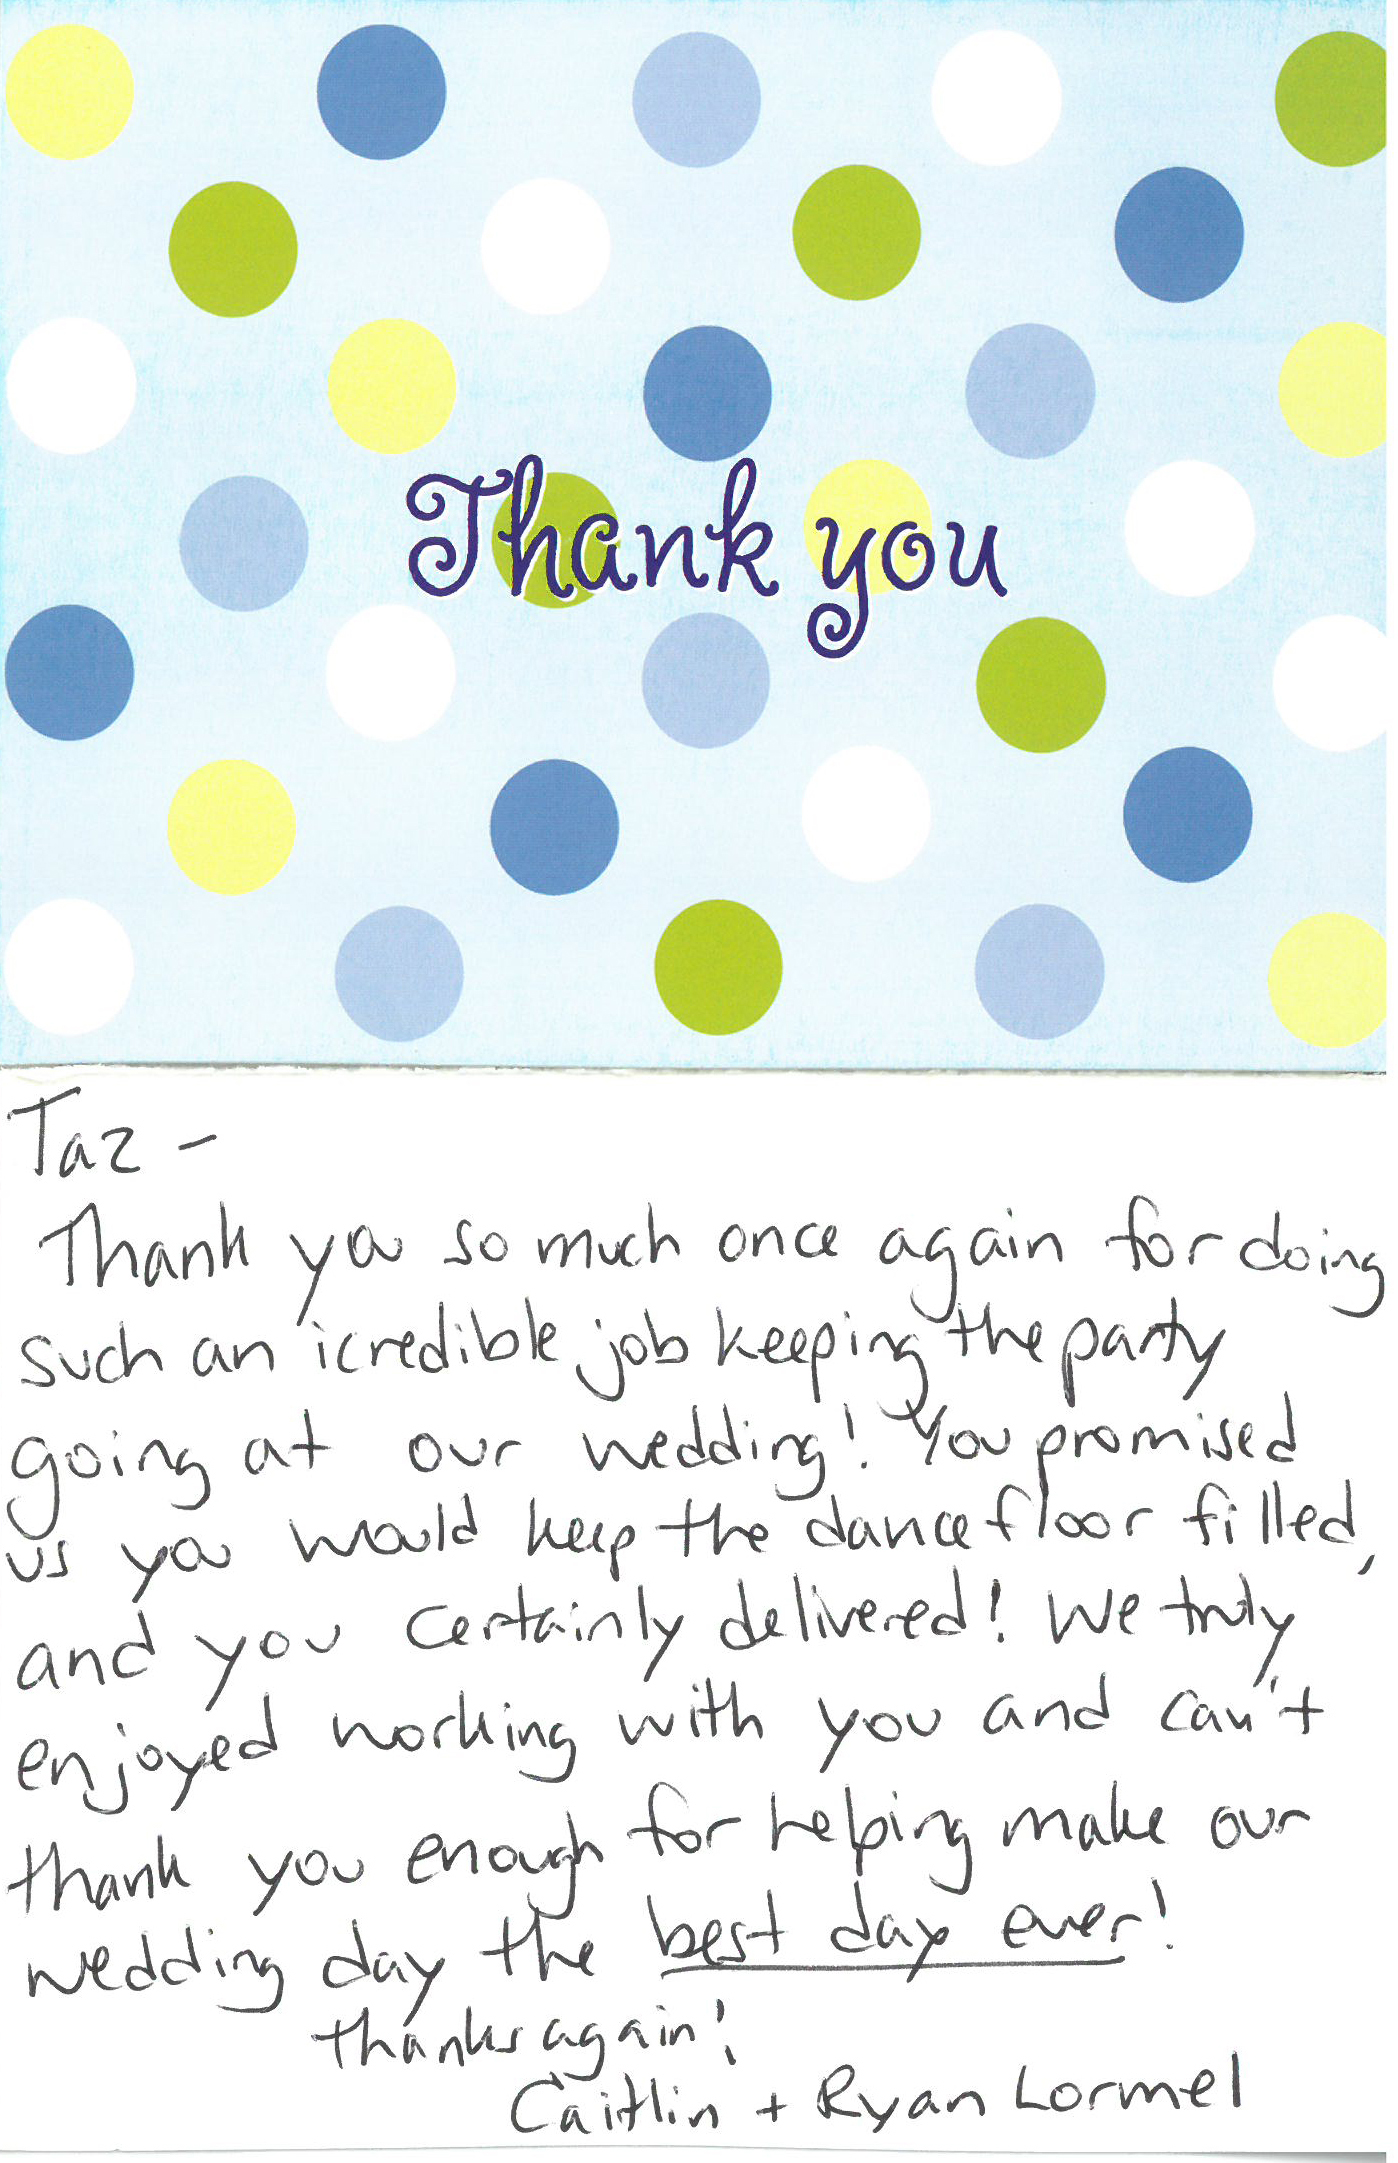 Thank you
Taz -
Thank you so much once again for doing
such an icredible job keeping the party
going at our wedding! You promised
us you would keep the dance floor filled,
and you certainly delivered! We truly
enjoyed working with you and can't
thank you enough for helping make our
wedding day the best day ever!
thanks again!
Caitlin + Ryan Lormel